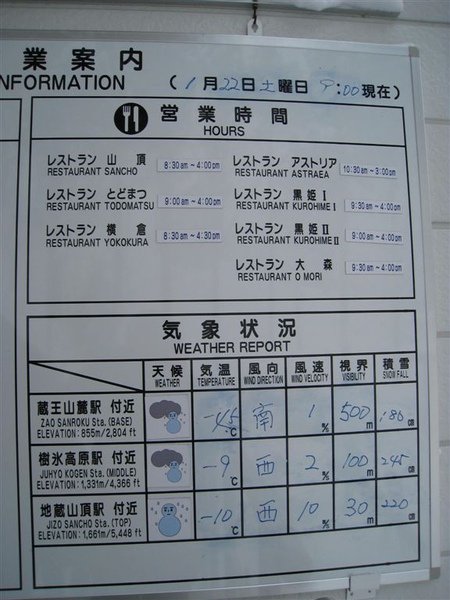 業案内
INFORMATION (1月22日土曜日 9:00現在)
営業時間
HOURS
レストラン 山頂 8:30am～4:00pm
RESTAURANT SANCHO
レストラン とどまつ 9:00am～4:00pm
RESTAURANT TODOMATSU
レストラン 横倉 8:30am～4:30pm
RESTAURANT YOKOKURA
レストラン アストリア 10:30am～3:00pm
RESTAURANT ASTRAEA
レストラン 黒姫I 9:30am～4:00pm
RESTAURANT KUROHIME I
レストラン 黒姫II 9:00am～4:00pm
RESTAURANT KUROHIME II
レストラン 大森 9:30am～4:00pm
RESTAURANT O MORI
気象状況
WEATHER REPORT
天候 気温 風向 風速 視界 積雪
WEATHER TEMPERATURE WIND DIRECTION WIND VELOCITY VISIBILITY SNOW FALL
蔵王山麓駅 付近
ZAO SANROKU Sta. (BASE)
ELEVATION: 855m/2,804 ft
-4.5℃ 南 1% 500m 180cm
樹氷高原駅 付近
JUHYO KOGEN Sta. (MIDDLE)
ELEVATION: 1,331m/4,366 ft
-9℃ 西 2% 100m 245cm
地蔵山頂駅 付近
JIZO SANCHO Sta. (TOP)
ELEVATION: 1,661m/5,448 ft
-10℃ 西 10% 30m 220cm